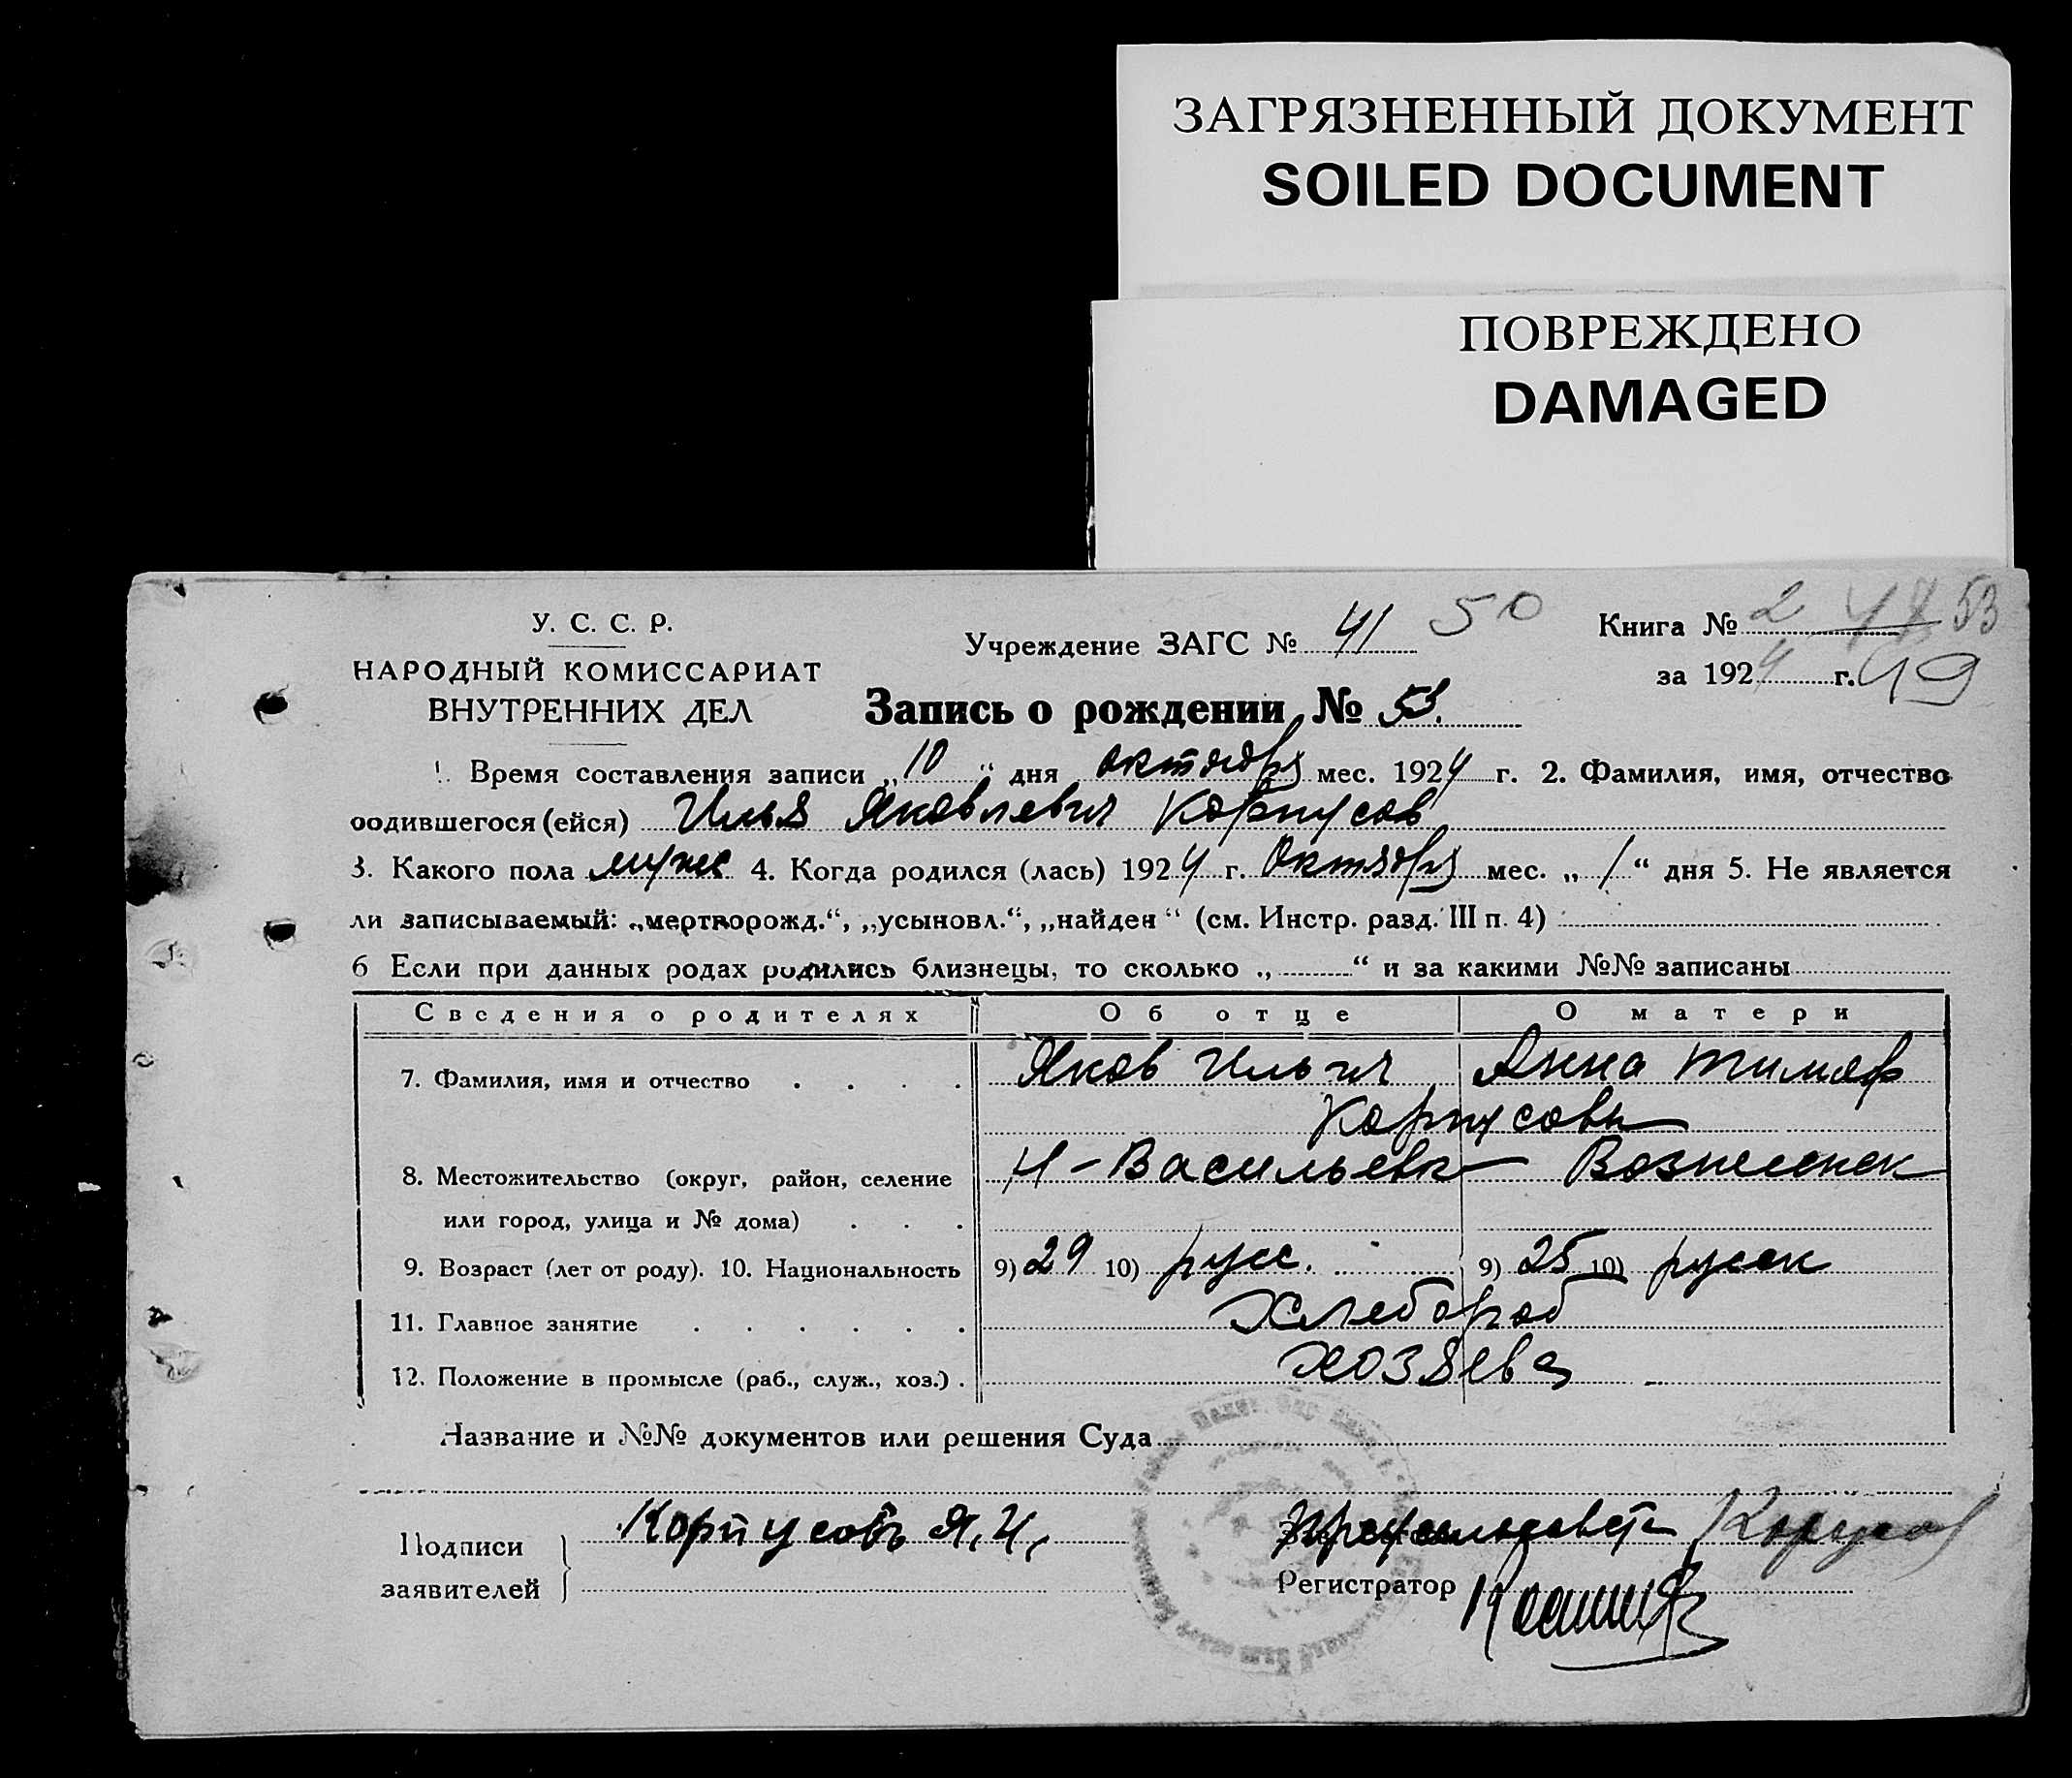 ЗАГРЯЗНЕННЫЙ ДОКУМЕНТ
SOILED DOCUMENT
ПОВРЕЖДЕНО
DAMAGED
У. С. С. Р.
НАРОДНЫЙ КОМИССАРИАТ
ВНУТРЕННИХ ДЕЛ
Учреждение ЗАГС № 41 50
Книга № 2 47 53
за 1924 г. 49
Запись о рождении № 53.
1. Время составления записи „10" дня октября мес. 1924 г. 2. Фамилия, имя, отчество
родившегося (ейся) Илья Яковлевич Корпусов
3. Какого пола муж 4. Когда родился (лась) 1924 г. Октября мес. „1" дня 5. Не является
ли записываемый: „мертворожд.", „усыновл.", „найден" (см. Инстр. разд. III п. 4)
6 Если при данных родах родились близнецы, то сколько „ " и за какими №№ записаны
Сведения о родителях Об отце О матери
7. Фамилия, имя и отчество Яков Ильич Анна Тимоф
Корпусовы
8. Местожительство (округ, район, селение Н-Васильевк Вознесенск
или город, улица и № дома)
9. Возраст (лет от роду). 10. Национальность 9) 29 10) русс. 9) 25 10) русск
11. Главное занятие Хлебороб
12. Положение в промысле (раб., служ., хоз.) хозяева
Название и №№ документов или решения Суда
Подписи Корпусовъ Я. И.
заявителей
Регистратор